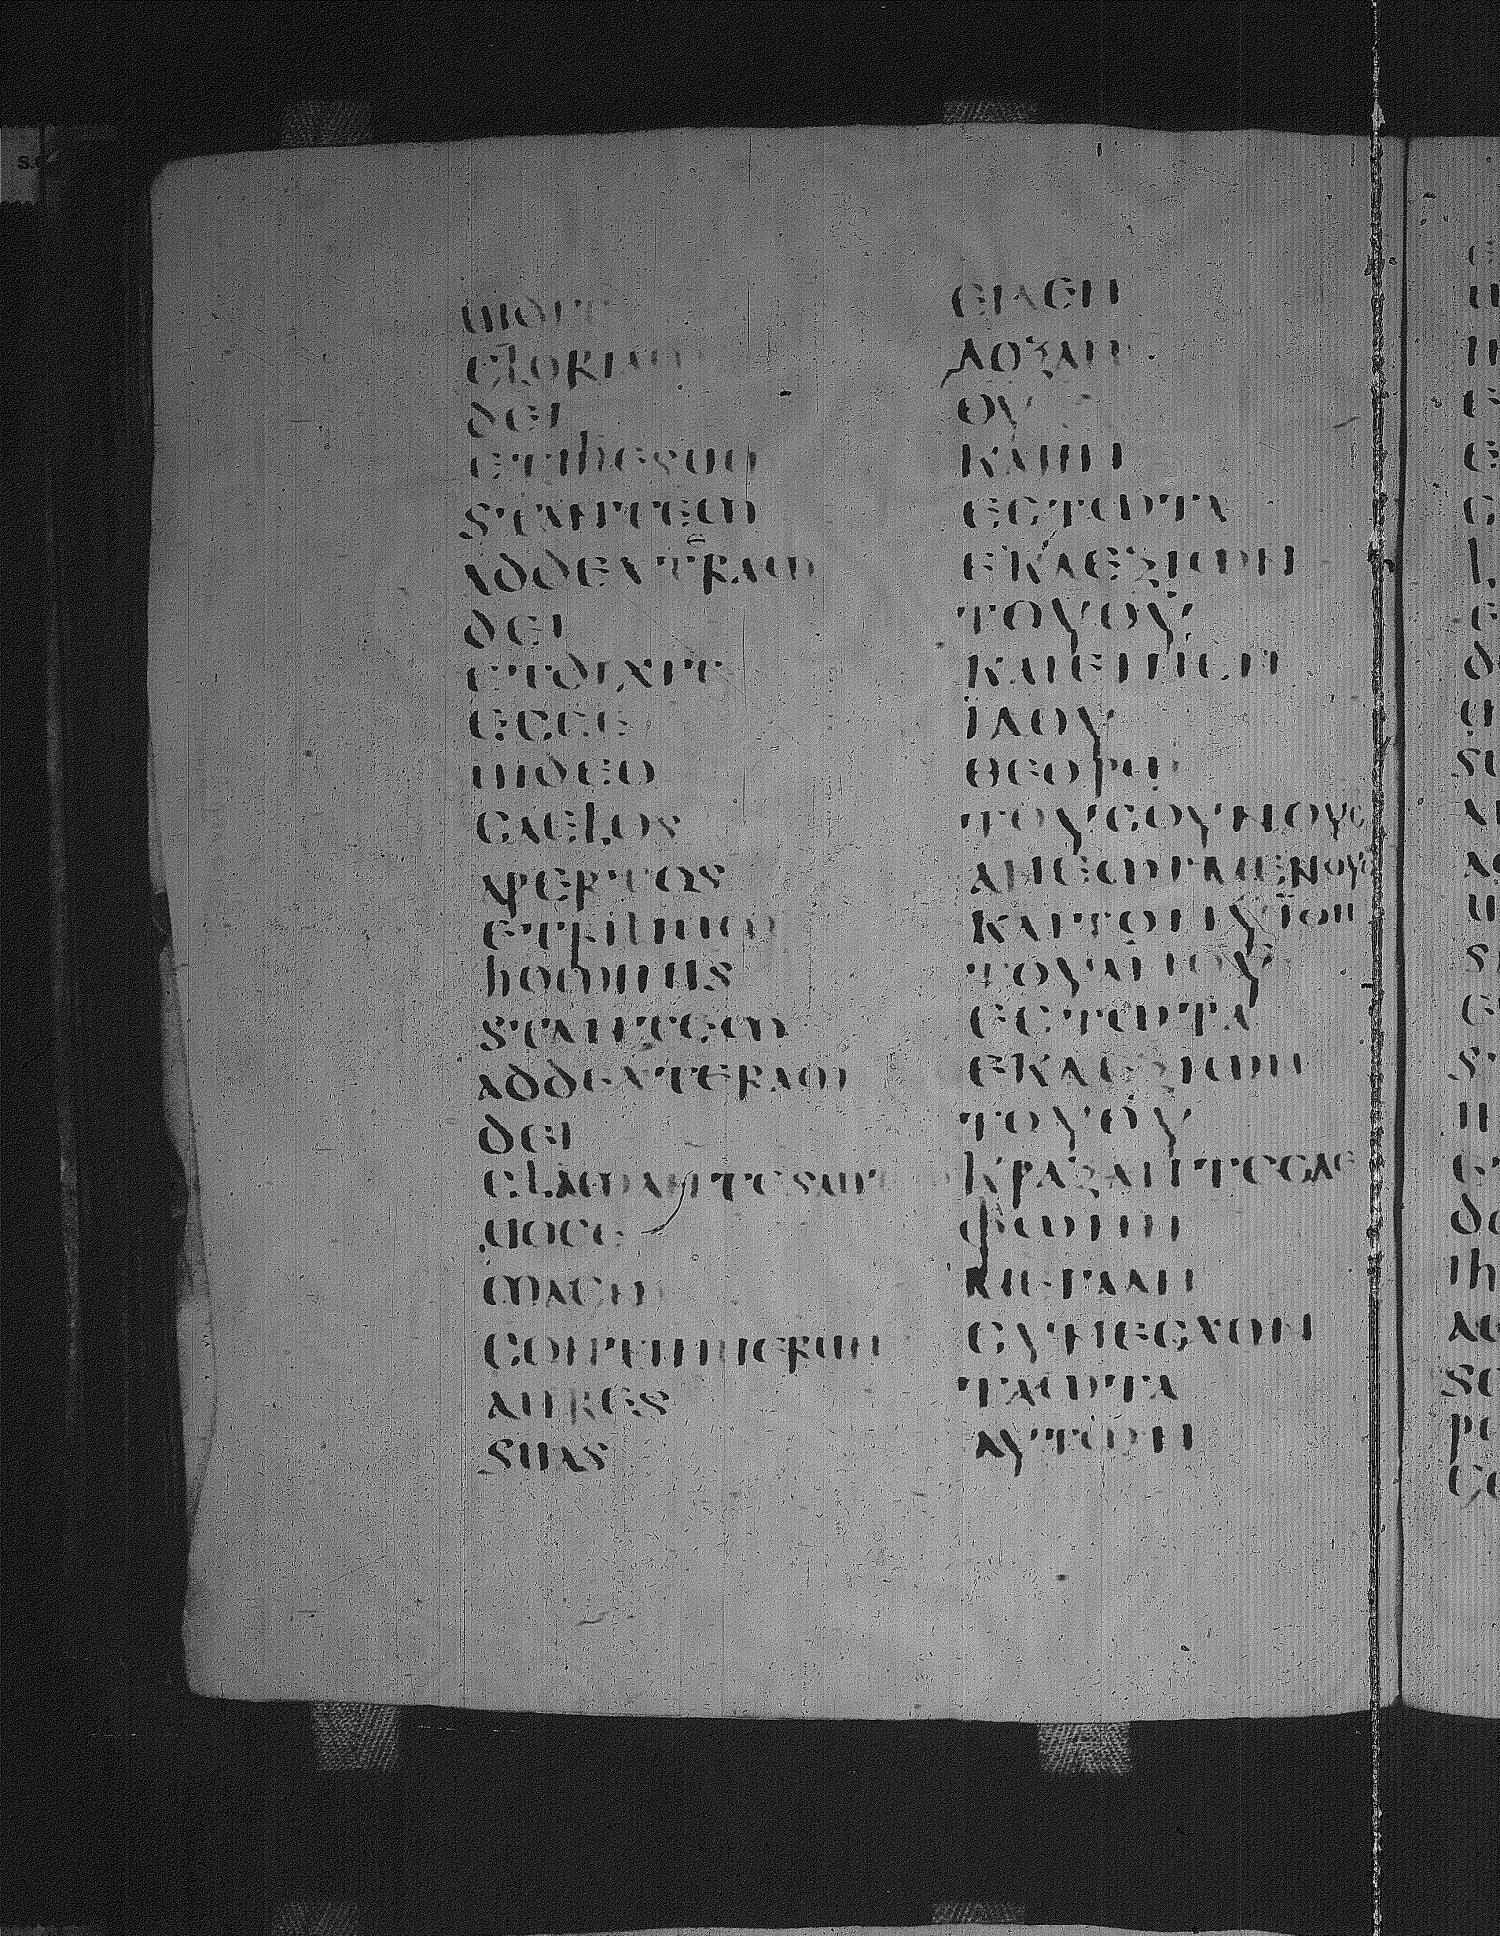 uidit
gloriam
dei
et ihesum
stantem
ad dextram
dei
et dixit
ecce
uideo
caelos
apertos
et filium
hominis
stantem
ad dexteram
dei
clamantes aut
uoce
magna
continuerunt
aures
suas
ΕΙΔΕΝ
ΔΟΞΑΝ
ΘΥ
ΚΑΙΙΝ
ΕΣΤΩΤΑ
ΕΚΔΕΞΙΩΝ
ΤΟΥΘΥ
ΚΑΙΕΙΠΕΝ
ΙΔΟΥ
ΘΕΟΡΩ
ΤΟΥΣΟΥΝΟΥΣ
ΑΝΕΩΓΜΕΝΟΥΣ
ΚΑΙΤΟΝΥΙΟΝ
ΤΟΥΑΝΟΥ
ΕΣΤΩΤΑ
ΕΚΔΕΞΙΩΝ
ΤΟΥΘΥ
ΚΡΑΞΑΝΤΕΣΔΕ
ΦΩΝΗ
ΜΕΓΑΛΗ
ΣΥΝΕΣΧΟΝ
ΤΑΩΤΑ
ΑΥΤΩΝ